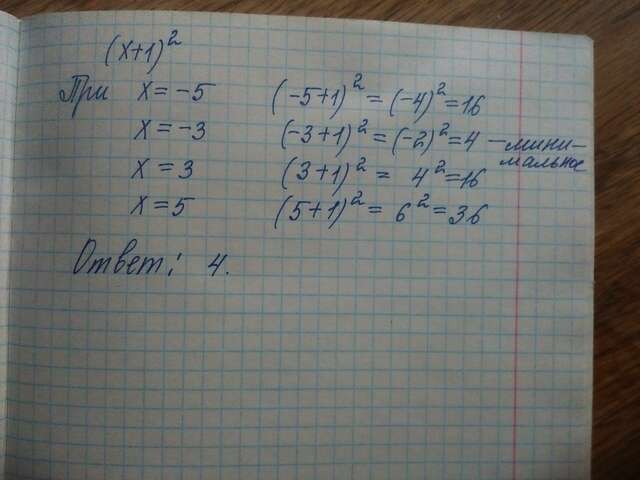 (x+1)²
При x = -5 (-5+1)² = (-4)² = 16
x = -3 (-3+1)² = (-2)² = 4 - мини-
мальное
x = 3 (3+1)² = 4² = 16
x = 5 (5+1)² = 6² = 36
Ответ: 4.